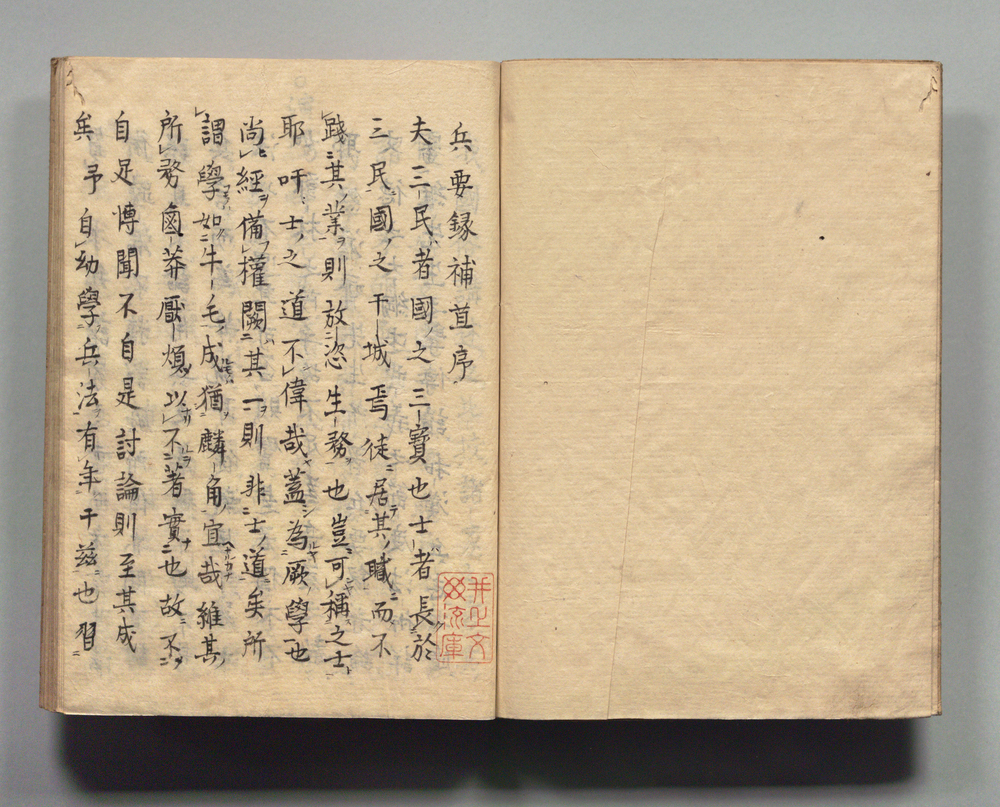 兵要録補苴序
夫三民者國之三寶也士者長於
三民國之干城焉徒居其職而不
踐其業則放恣生務也豈可稱之士
耶吁士之道不偉哉蓋為厥學也
尚經備權闕其一則非士道矣所
謂學如牛毛成猶麟角宜哉維其
所務鹵莽厭煩以不著實也故不
自足博聞不自是討論則至其成
矣予自幼學兵法有年于茲也習
井上文庫